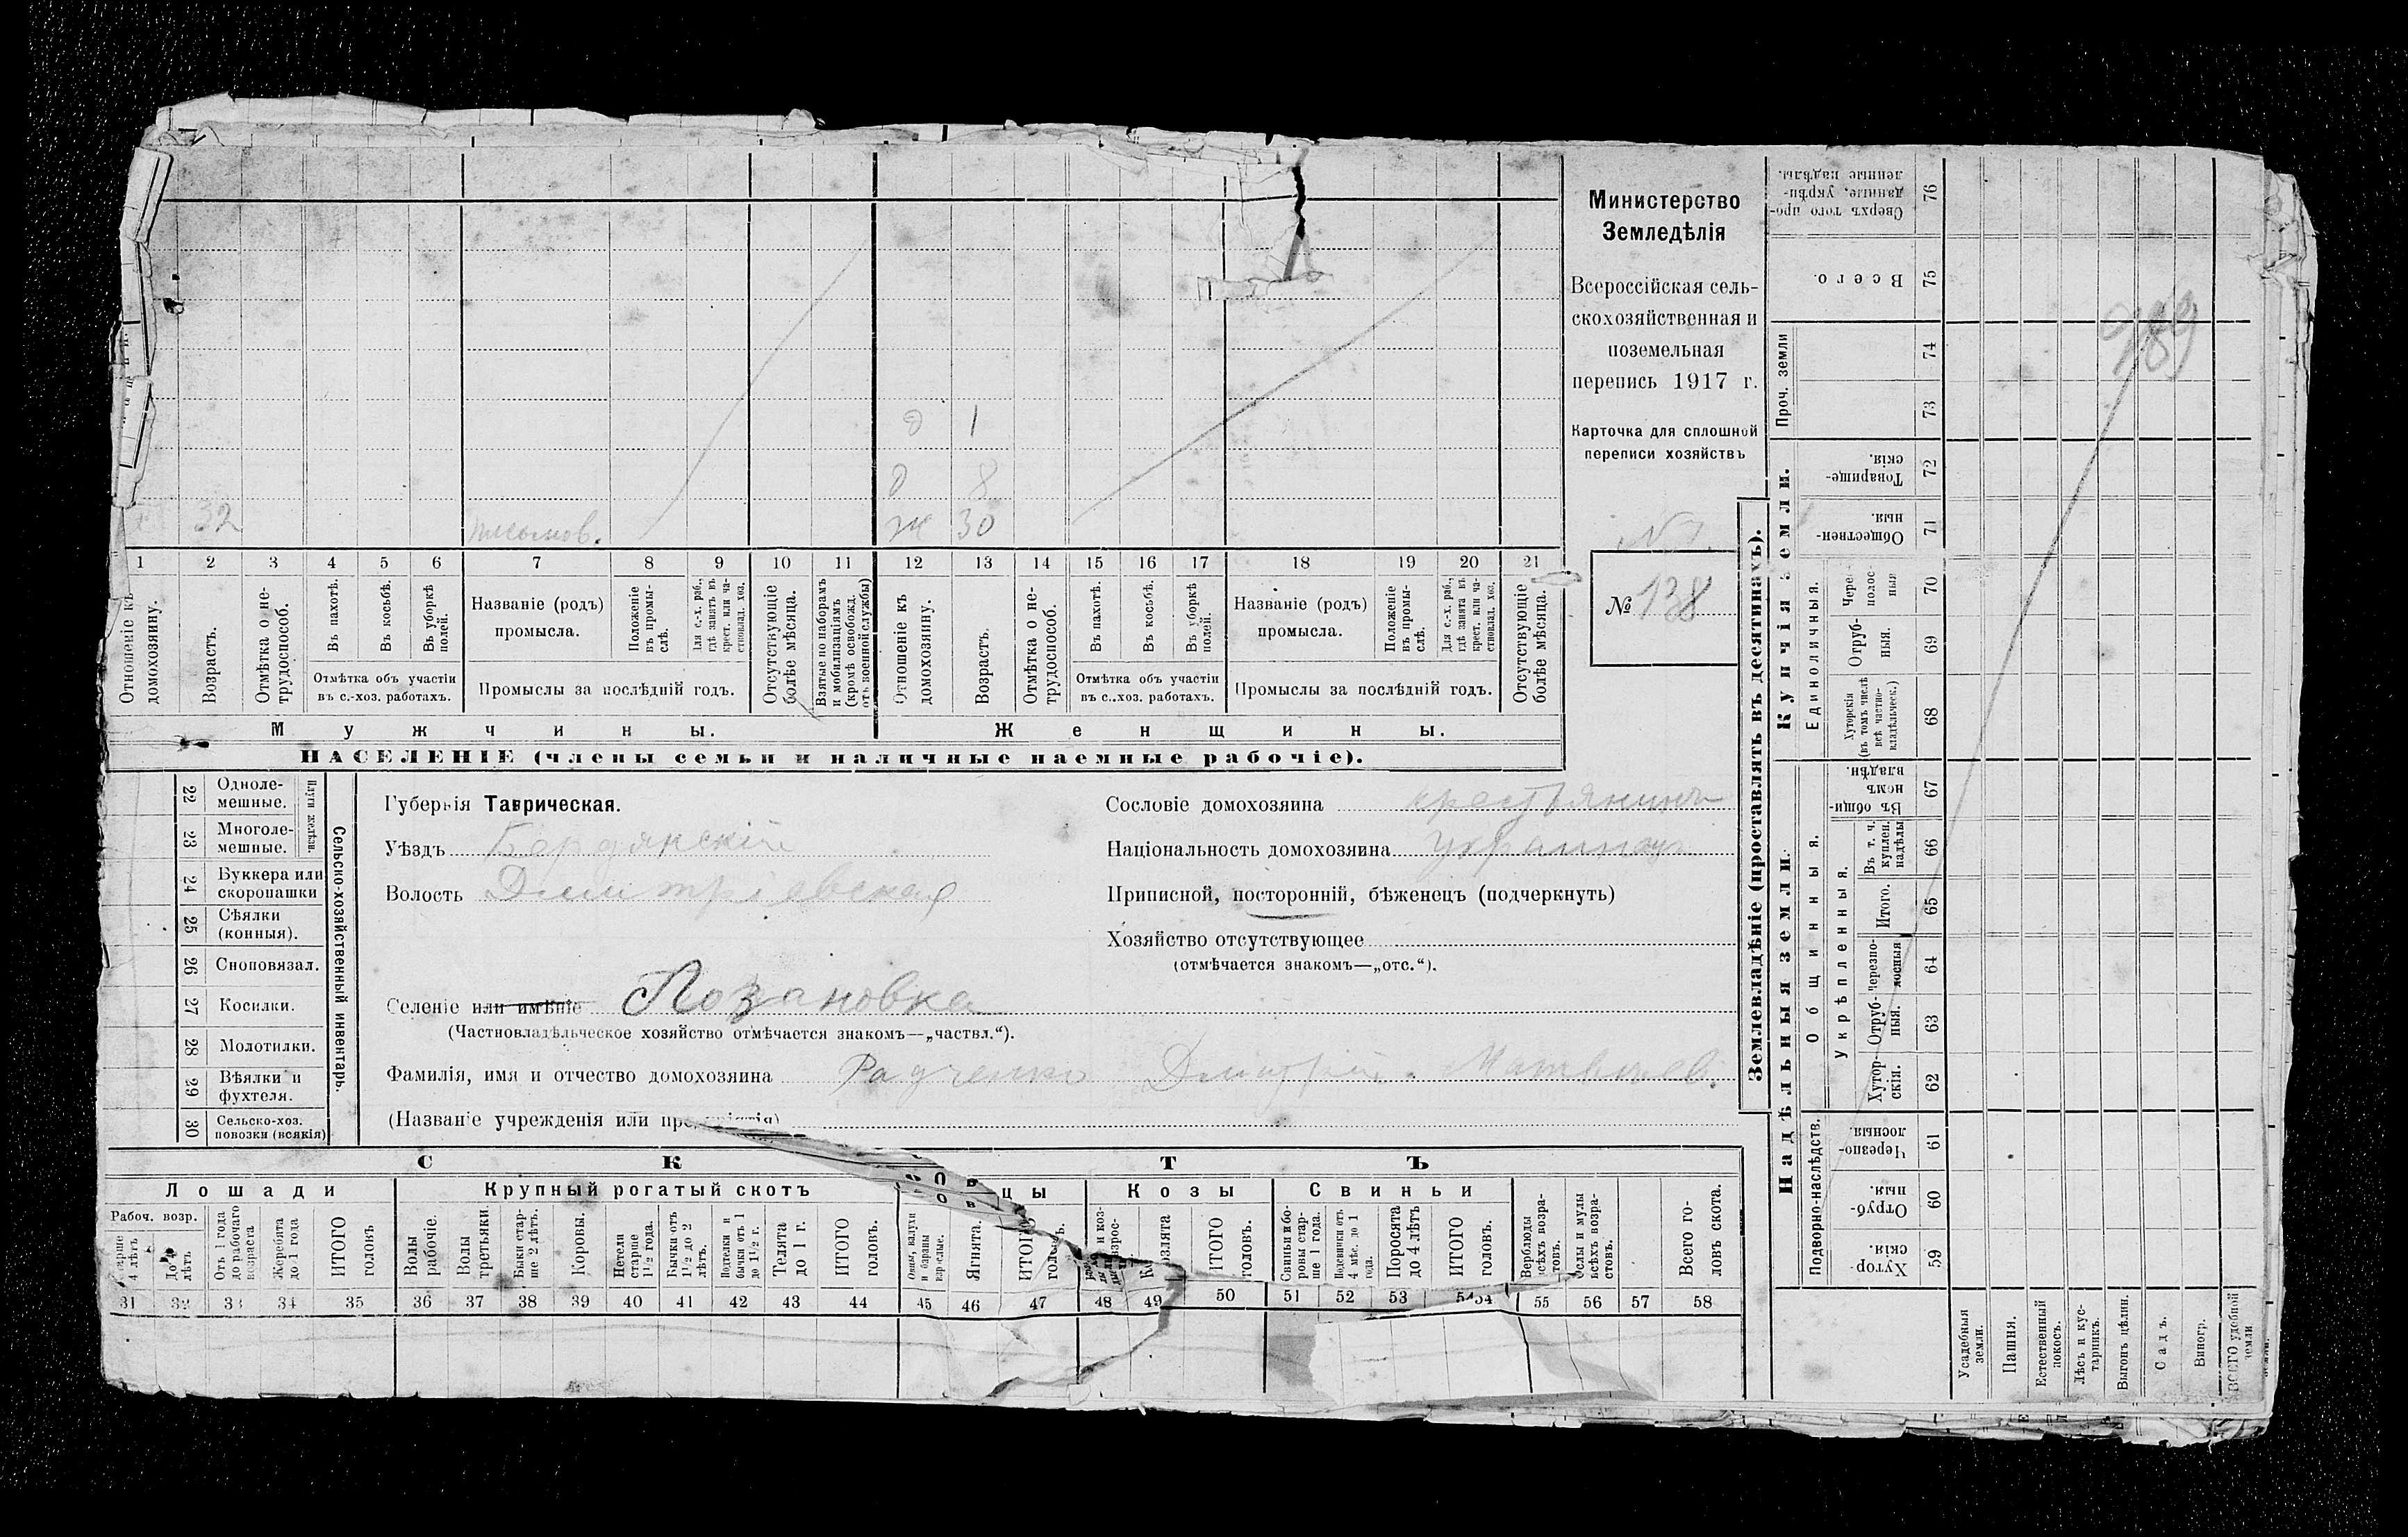 Министерство
Земледѣлія
Всероссійская сель-
скохозяйственная и
поземельная
перепись 1917 г.
Карточка для сплошной
переписи хозяйствъ
№ 138
989
О 1
8
32 Ж 30
1 2 3 4 5 6 7 8 9 10 11 12 13 14 15 16 17 18 19 20 21
Отношеніе къ домохозяину.
Возрастъ.
Отмѣтка о не-трудоспособ.
Въ пахотѣ.
Въ косьбѣ.
Въ уборкѣ полей.
Отмѣтка объ участіи
въ с.-хоз. работахъ.
Названіе (родъ)
промысла.
Положеніе въ промы-слѣ.
Для с.-х. раб., гдѣ занятъ въ крест. или ча-стновлад. хоз.
Промыслы за послѣдній годъ.
Отсутствующіе болѣе мѣсяца.
Взятые по наборамъ и мобилизаціямъ (кромѣ освобожд. отъ военной службы)
Отношеніе къ домохозяину.
Возрастъ.
Отмѣтка о не-трудоспособ.
Въ пахотѣ.
Въ косьбѣ.
Въ уборкѣ полей.
Отмѣтка объ участіи
въ с.-хоз. работахъ.
Названіе (родъ)
промысла.
Положеніе въ промы-слѣ.
Для с.-х. раб., гдѣ занята въ крест. или ча-стновлад. хоз.
Промыслы за послѣдній годъ.
Отсутствующіе болѣе мѣсяца.
Мужчины. Женщины.
НАСЕЛЕНІЕ (члены семьи и наличные наемные рабочіе).
Сельско-хозяйственный инвентарь.
Плуги желѣзн.
22 Одноле-мешные.
23 Многоле-мешные.
24 Буккера или скоропашки
25 Сѣялки (конныя).
26 Сноповязал.
27 Косилки.
28 Молотилки.
29 Вѣялки и фухтеля.
30 Сельско-хоз. повозки (всякія)
Губернія Таврическая.
Уѣздъ Бердянскій
Волость Дмитріевская
Селеніе или имѣніе Лозановка
(Частновладѣльческое хозяйство отмѣчается знакомъ—„частвл.“).
Фамилія, имя и отчество домохозяина Радченко Дмитрій Матвѣев.
(Названіе учрежденія или
Сословіе домохозяина крестьянинъ
Національность домохозяина украинец
Приписной, посторонній, бѣженецъ (подчеркнуть)
Хозяйство отсутствующее
(отмѣчается знакомъ—„отс.“).
СКОТЪ
Лошади
Рабоч. возр.
Старше 4 лѣтъ
До 4 лѣтъ
Отъ 1 года до рабочаго возраста
Жеребята до 1 года
ИТОГО головъ
Крупный рогатый скотъ
Волы рабочіе.
Волы третьяки.
Быки стар-ше 2 лѣтъ.
Коровы.
Нетели старше 1½ года.
Бычки отъ 1½ до 2 лѣтъ.
Подтелки и бычки отъ 1 до 1½ г.
Телята до 1 г.
ИТОГО головъ.
Овцы
Овцы, валухи и бараны взрослые.
Ягнята.
ИТОГО
Козы
Козлята
ИТОГО головъ.
Свиньи
Свиньи и бо-ровы стар-ше 1 года.
Подсвинки отъ 4 мѣс. до 1 года.
Поросята до 4 лѣтъ
ИТОГО головъ.
Верблюды всѣхъ возра-стовъ.
Ослы и мулы всѣхъ возра-стовъ.
Всего го-ловъ скота.
31 32 33 34 35 36 37 38 39 40 41 42 43 44 45 46 47 48 49 50 51 52 53 54 55 56 57 58
Землевладѣніе (проставлять въ десятинахъ).
Купчія земли.
Надѣльныя земли.
Сверхъ того про-данные, укрѣп-ленные надѣлы. 76
Всего. 75
Проч. земли 74 73
Товарище-скія. 72
Обществен-ныя. 71
Единоличныя.
Чере-полос-ныя 70
Отруб-ныя. 69
Хуторскія (въ томъ числѣ всѣ частно-владѣльческ.) 68
Общинныя.
Въ общи-номъ владѣн. 67
Укрѣпленныя.
Въ т. ч. куплен. надѣлы 66
Итого. 65
Черезпо-лосныя 64
Отруб-ныя. 63
Хутор-скія. 62
Подворно-наслѣдств.
Черезпо-лосныя. 61
Отруб-ныя. 60
Хутор-скія. 59
Усадебныя земли.
Пашня.
Естественный покосъ.
Лѣсъ и кус-тарникъ.
Выгонъ цѣлин.
Садъ.
Виногр.
ВСЕГО удобной земли